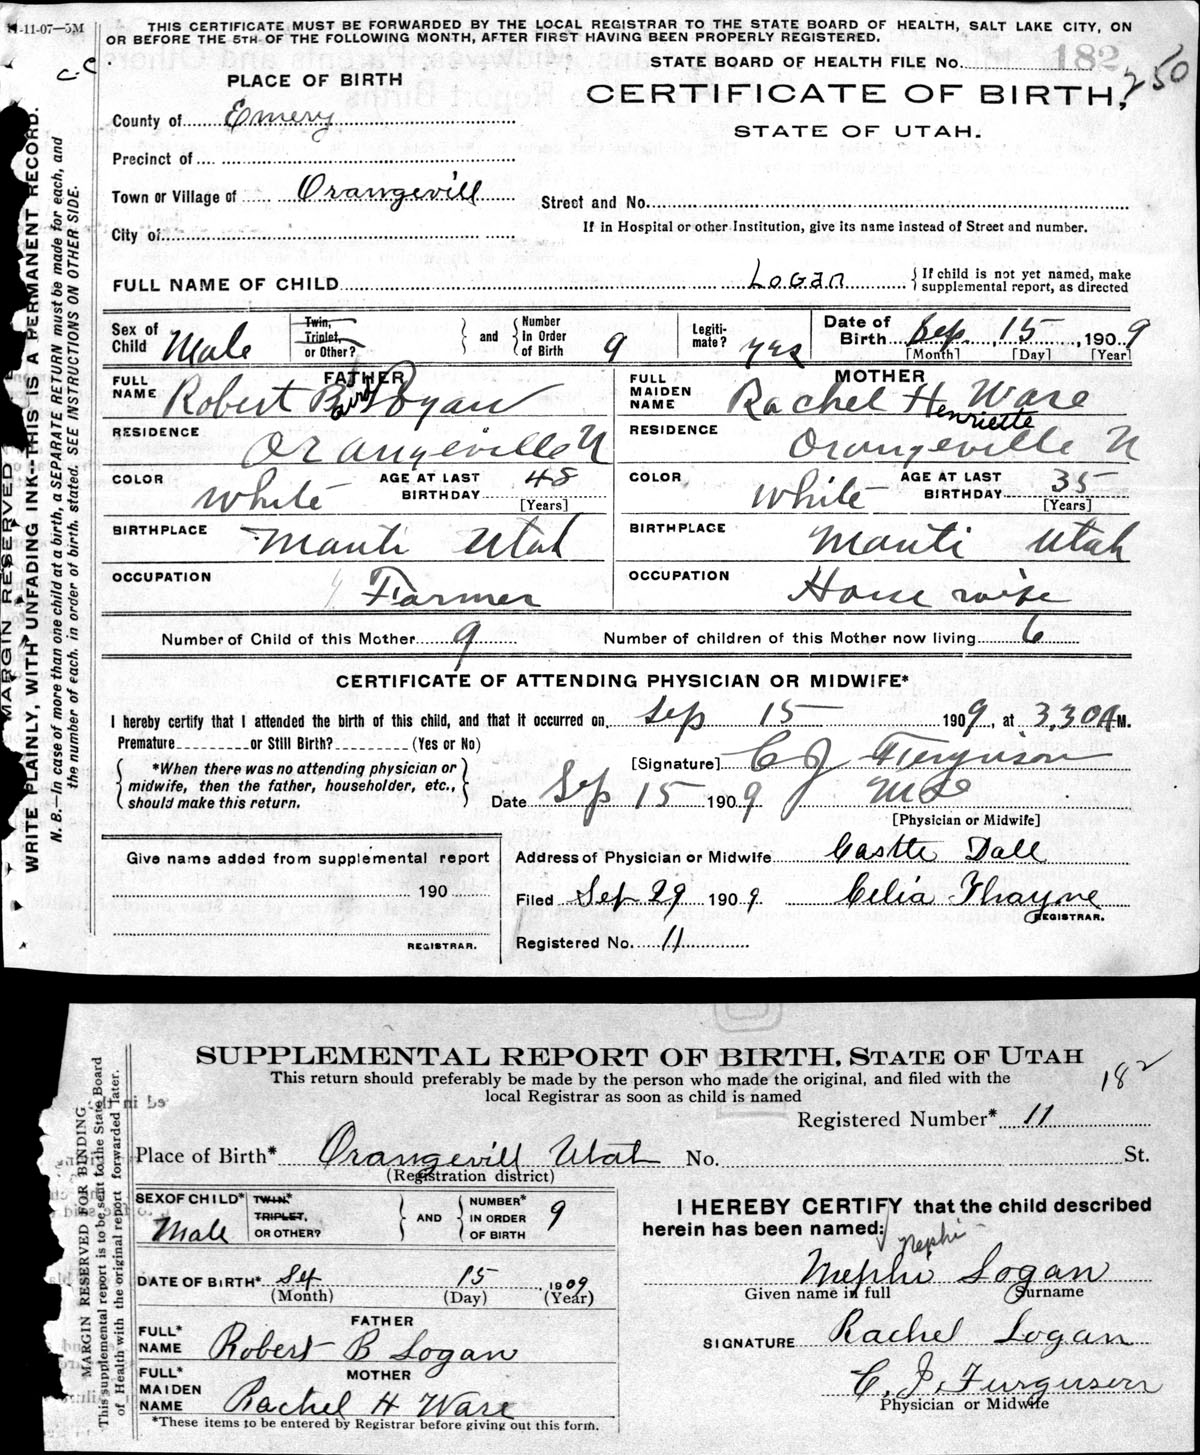 11-11-07—5M
THIS CERTIFICATE MUST BE FORWARDED BY THE LOCAL REGISTRAR TO THE STATE BOARD OF HEALTH, SALT LAKE CITY, ON
OR BEFORE THE 5TH OF THE FOLLOWING MONTH, AFTER FIRST HAVING BEEN PROPERLY REGISTERED.
STATE BOARD OF HEALTH FILE No. 182
250
PLACE OF BIRTH
CERTIFICATE OF BIRTH,
STATE OF UTAH.
County of Emery
Precinct of
Town or Village of Orangevill
Street and No.
City of
If in Hospital or other Institution, give its name instead of Street and number.
FULL NAME OF CHILD Logan
If child is not yet named, make
supplemental report, as directed
Sex of Child Male
Twin, Triplet, or Other?
and
Number In Order of Birth 9
Legiti- mate? yes
Date of Birth Sep 15, 1909
[Month] [Day] [Year]
FATHER
FULL NAME Robert Baird Logan
RESIDENCE Orangeville U
COLOR White AGE AT LAST BIRTHDAY 48
[Years]
BIRTHPLACE Manti Utah
OCCUPATION Farmer
MOTHER
FULL MAIDEN NAME Rachel Henriette Ware
RESIDENCE Orangeville U
COLOR White AGE AT LAST BIRTHDAY 35
[Years]
BIRTHPLACE Manti Utah
OCCUPATION House wife
Number of Child of this Mother 9 Number of children of this Mother now living 6
CERTIFICATE OF ATTENDING PHYSICIAN OR MIDWIFE*
I hereby certify that I attended the birth of this child, and that it occurred on Sep 15 1909, at 3,30 A M.
Premature or Still Birth? (Yes or No)
*When there was no attending physician or
midwife, then the father, householder, etc.,
should make this return.
[Signature] C J Ferguson
Date Sep 15 1909
[Physician or Midwife]
Give name added from supplemental report
190
REGISTRAR.
Address of Physician or Midwife Castle Dall
Filed Sep 29 1909. Celia Thayne
REGISTRAR.
Registered No. 11
MARGIN RESERVED
WRITE PLAINLY, WITH UNFADING INK--THIS IS A PERMANENT RECORD.
N. B.—In case of more than one child at a birth, a SEPARATE RETURN must be made for each, and
the number of each, in order of birth, stated. SEE INSTRUCTIONS ON OTHER SIDE.
SUPPLEMENTAL REPORT OF BIRTH, STATE OF UTAH
This return should preferably be made by the person who made the original, and filed with the
local Registrar as soon as child is named
182
Registered Number* 11
Place of Birth* Orangevill Utah No. St.
(Registration district)
SEX OF CHILD* Male
TWIN,* TRIPLET, OR OTHER?
AND
NUMBER* IN ORDER OF BIRTH 9
DATE OF BIRTH* Sep 15 1909
(Month) (Day) (Year)
FATHER
FULL* NAME Robert B Logan
MOTHER
FULL* MAIDEN NAME Rachel H Ware
*These items to be entered by Registrar before giving out this form.
I HEREBY CERTIFY that the child described
herein has been named:
Nephi
Mephi Logan
Given name in full Surname
SIGNATURE Rachel Logan
C. J. Furguson
Physician or Midwife
MARGIN RESERVED FOR BINDING
This supplemental report is to be sent to the State Board
of Health with the original report forwarded later.